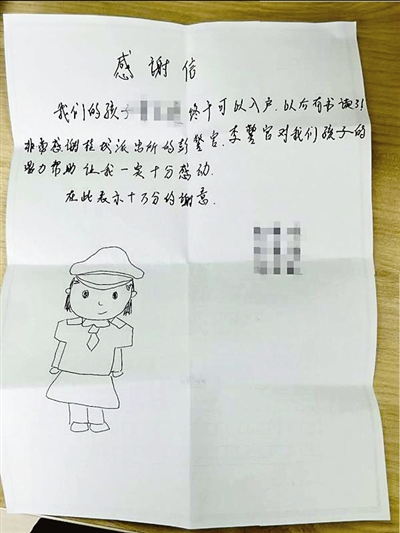 感谢信
我们的孩子 终于可以入户.以后有书读了!
非常感谢桂城派出所的彭警官.李警官对我们孩子的
力帮助 让我一家十分感动.
在此表示十万分的谢意.